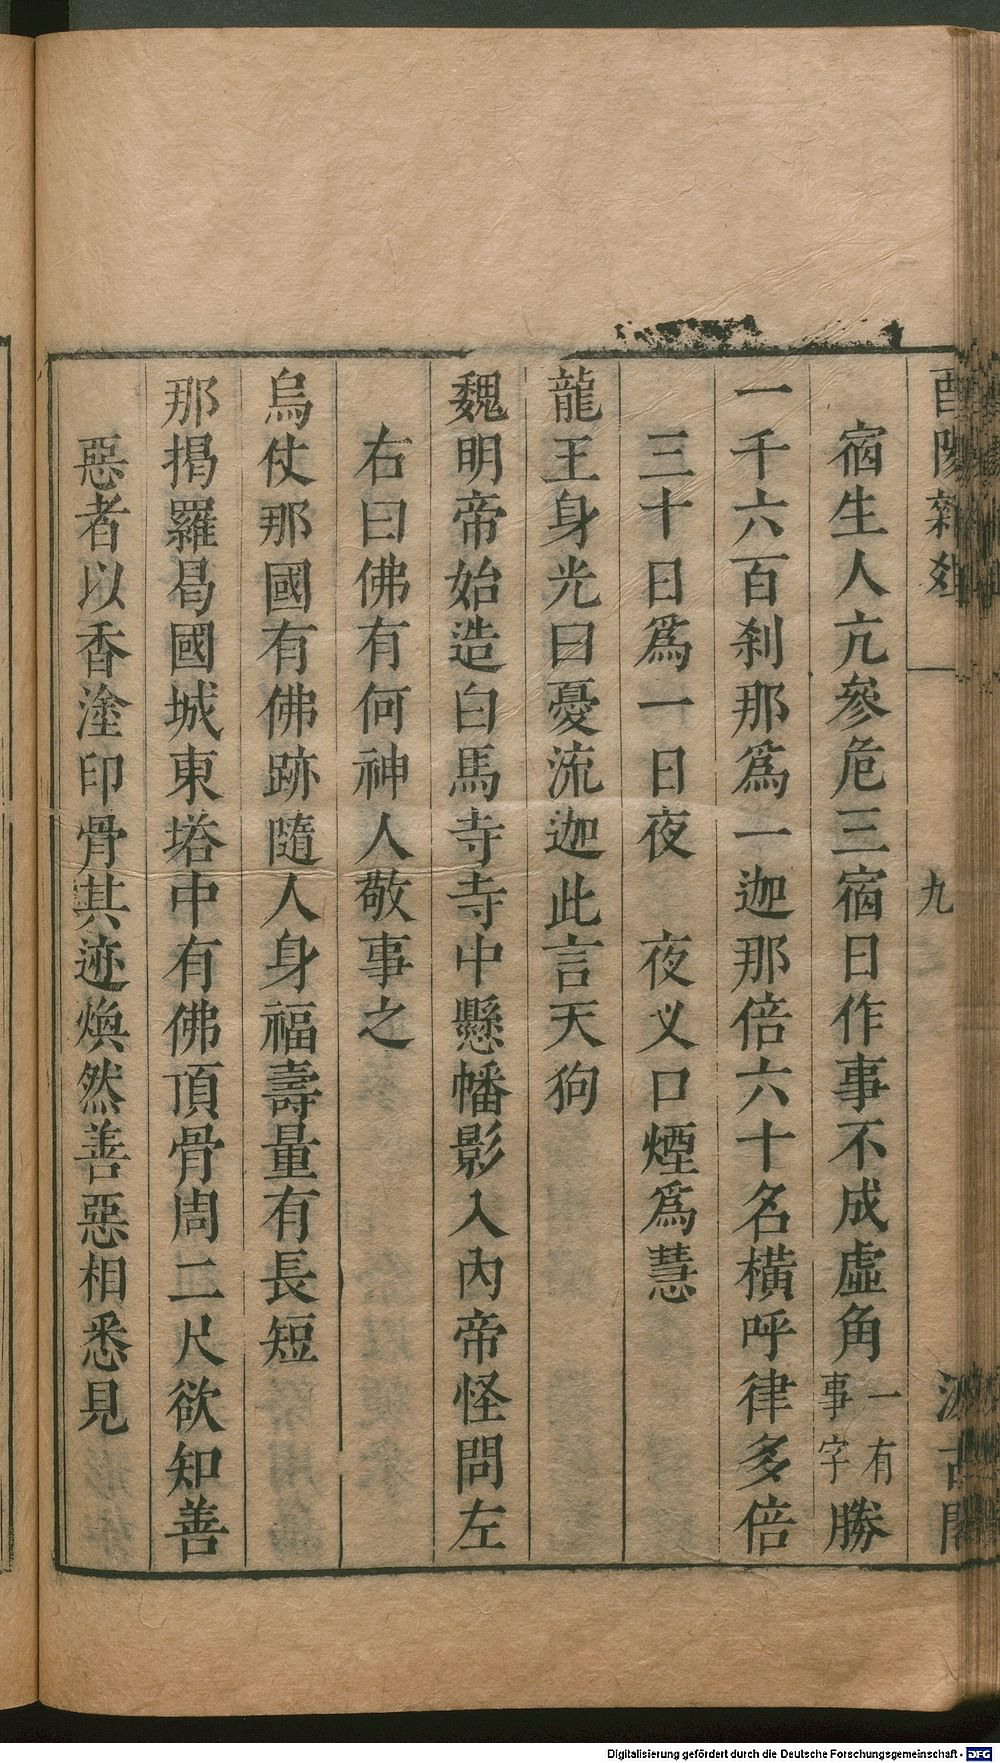 酉陽雜俎
九
汲古閣
宿生人亢參危三宿日作事不成虛角一有事字勝
一千六百刹那爲一迦那倍六十名橫呼律多倍
三十日爲一日夜 夜义口煙爲慧
龍王身光曰憂流迦此言天狗
魏明帝始造白馬寺寺中懸幡影入內帝怪問左
右曰佛有何神人敬事之
烏仗那國有佛跡隨人身福壽量有長短
那揭羅曷國城東塔中有佛頂骨周二尺欲知善
惡者以香塗印骨其迹煥然善惡相悉見
Digitalisierung gefördert durch die Deutsche Forschungsgemeinschaft - DFG